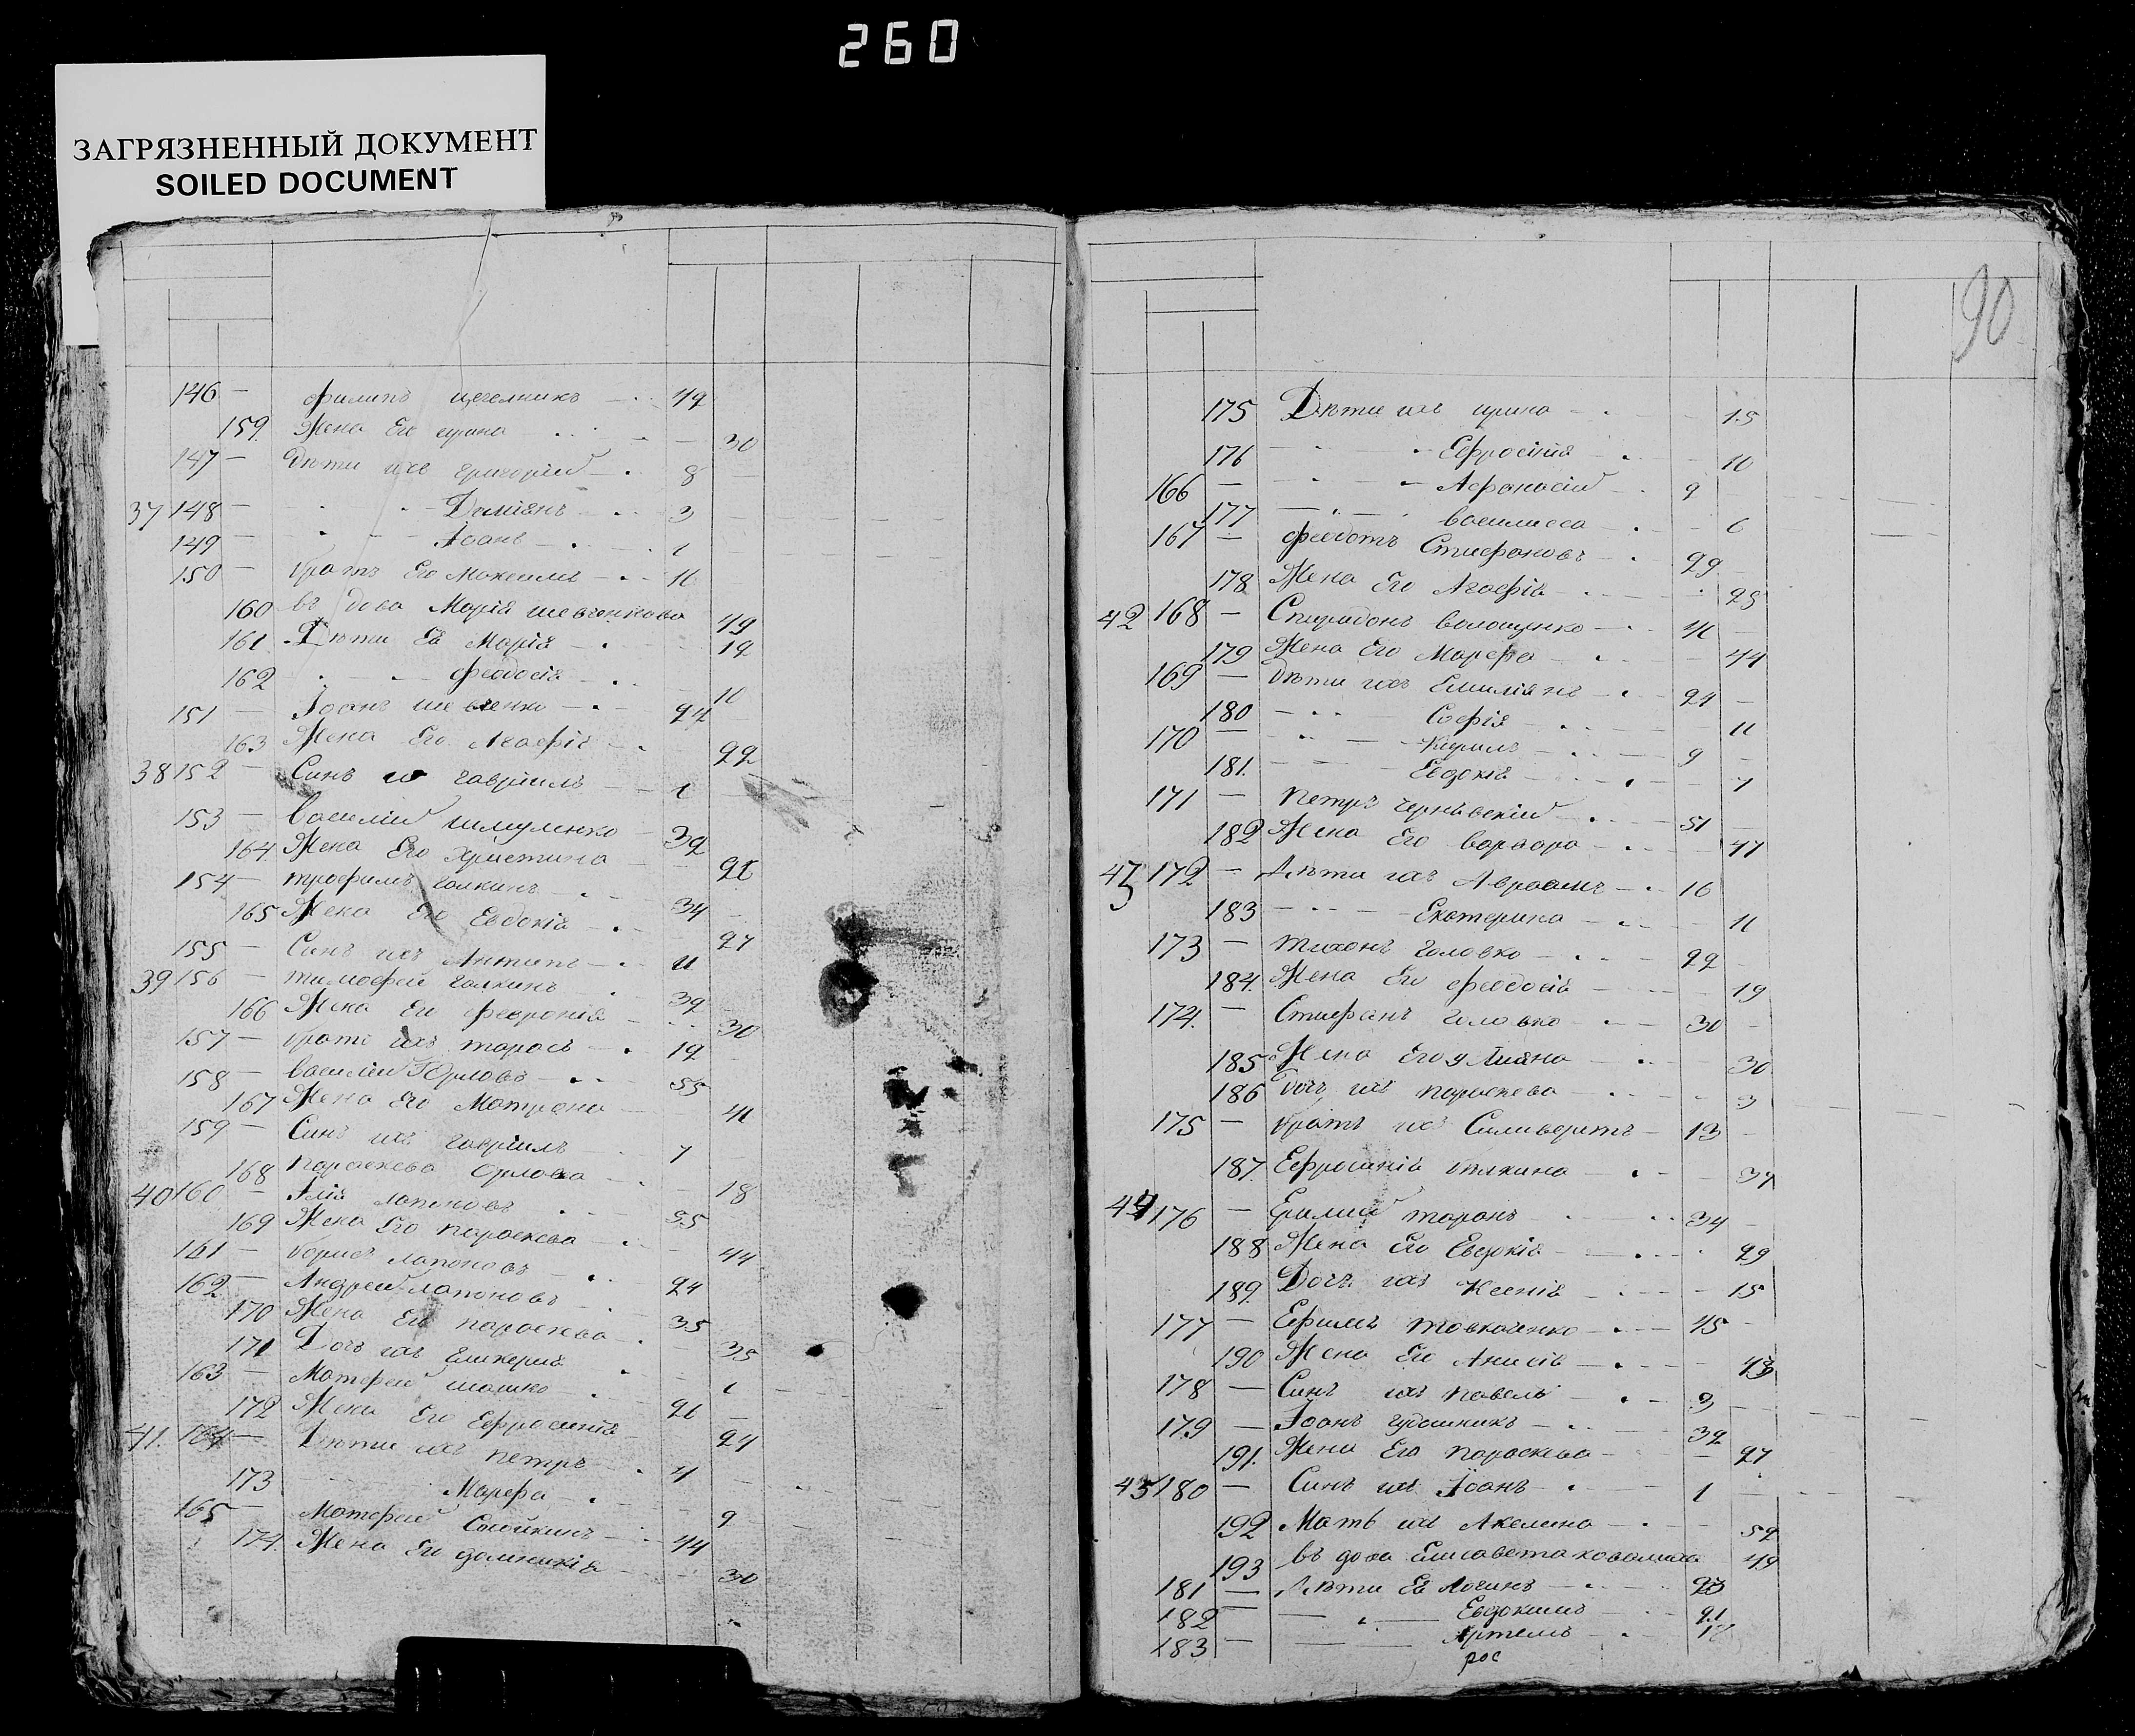 260
ЗАГРЯЗНЕННЫЙ ДОКУМЕНТ
SOILED DOCUMENT
146 — филипъ цегелникъ 42
159 Жена Его ирина 30
147 — Дѣти ихъ григорий 8
37 148 — Демianъ 3
149 — Iоанъ 1
150 — братъ Его Максимъ 11
160 въ дова Марiя шевченкова 49
161 Дѣти Еѣ Марiя 12
162 феодосiя 10
151 — Iоанъ шевченко 24
163 Жена Его Агафiя 22
38 152 — Синъ их гаврiилъ 1
153 — василий шмуленко 32
164 Жена Его Христина
154 — трофимъ галкинъ 34
165 Жена Его Евдокiя 27
155 — Синъ ихъ Антипъ 11
39 156 — тимофей галкинъ 32
166 Жена Его феврония 30
157 — братъ ихъ тарасъ 12
158 — василий Орловъ 55
167 Жена Его Матрона 41
159 — Синъ ихъ гаврiилъ 7
168 параскева Орлова 18
40 160 — Iлiя лапоновъ 55
169 Жена Его параскева 44
161 — борисъ лапоновъ 24
162 — Андрей лапоновъ 35
170 Жена Его параскева 35
171 Дочъ ихъ гликерия 1
163 — Матфей шашко 26
172 Жена Его Ефросинiя 24
41. 164 — Дѣти ихъ петръ 4
173 Марфа 9
165 — Матфей 44
174. Жена Его домникiя 30
90
175 Дѣти ихъ ирина 15
176 Ефросiния 10
166 — Афанасiй 9
177 василисса 6
167 — феодотъ Стиефановъ 29
178 Жена Его Агафiя 25
42 168 — Спиридонъ волощенко 41
179 Жена Его Марфа 44
169 — Дѣти ихъ Емилiянъ 21
180 Софiя 11
170 — Кирилъ 9
181. Евдокiя 7
171 — петръ чернѣвскiй 51
182 Жена Его варвара 47
43 172 — Дѣти ихъ Авраамъ 16
183 Екатерина 11
173 — тихонъ головко 22
184. Жена Его феодосiя 19
174. — Стиефанъ головко 30
185 Жена Его улияна 30
186 дочъ ихъ параскева 3
175 — братъ ихъ Силиверстъ 13
187. Ефросинiя 37
44 176 — таранъ 34
188 Жена Его Евдокiя 29
189. Дочъ ихъ Ксенiя 15
177 — Ефимъ товкаченко 45
190 Жена Его Анисiя 43
178 — Синъ ихъ павелъ 3
179 — Iоанъ гудошникъ 32
191. Жена Его параскева 27
45 180 — Синъ ихъ Iоанъ 1
192 Мать ихъ Акелина 52
193 въ дова Елисавета ковалиха 49
181 — Дѣти Еѣ логинъ 23
182 — Евдокимъ 21
183 — Артемъ 12
рос